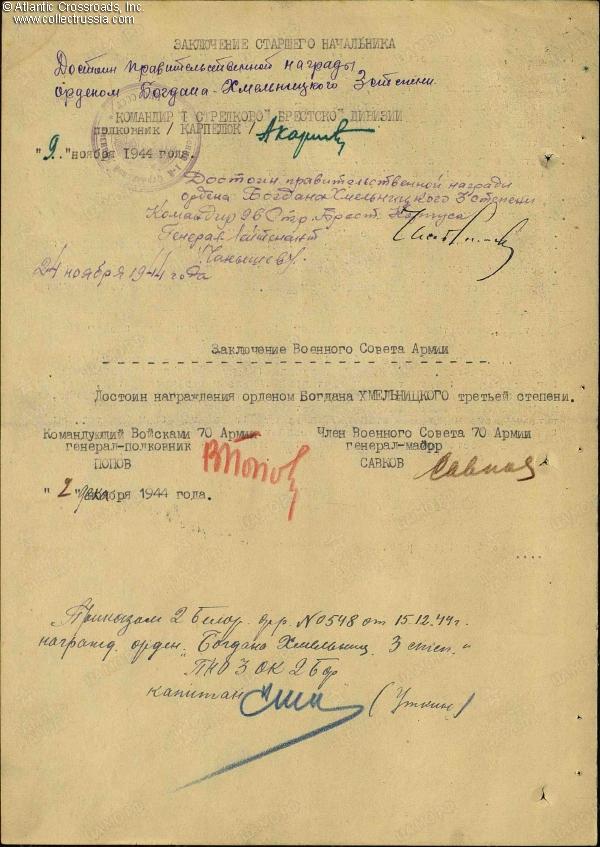 © Atlantic Crossroads, Inc.
www.collectrussia.com
ЗАКЛЮЧЕНИЕ СТАРШЕГО НАЧАЛЬНИКА
Достоин правительственной награды
орденом Богдана-Хмельницкого 3 степени.
КОМАНДИР 1 СТРЕЛКОВОЙ БРЕСТСКОЙ ДИВИЗИИ
полковник /КАРПЕЛЮК/
"9." ноября 1944 года.
Достоин правительственной награди
ордена Богдана Хмельницкого 3 степени
Командир 96 Стр. Брест. Корпуса
Генерал Лейтенант
/Чанышев/.
24 ноября 1944 года
Заключение Военного Совета Армии
Достоин награждения орденом Богдана ХМЕЛЬНИЦКОГО третьей степени.
Командующий Войсками 70 Армии Член Военного Совета 70 Армии
генерал-полковник генерал-майор
ПОПОВ ВПопов САВКОВ Савков
"2" декабря 1944 года.
Приказом 2 Белор. фр. №0548 от 15.12.44г.
награжд. орден. "Богдана Хмельниц. 3 степ."
ПНО 3 ОК 2 Бф
капитан (Уткин)